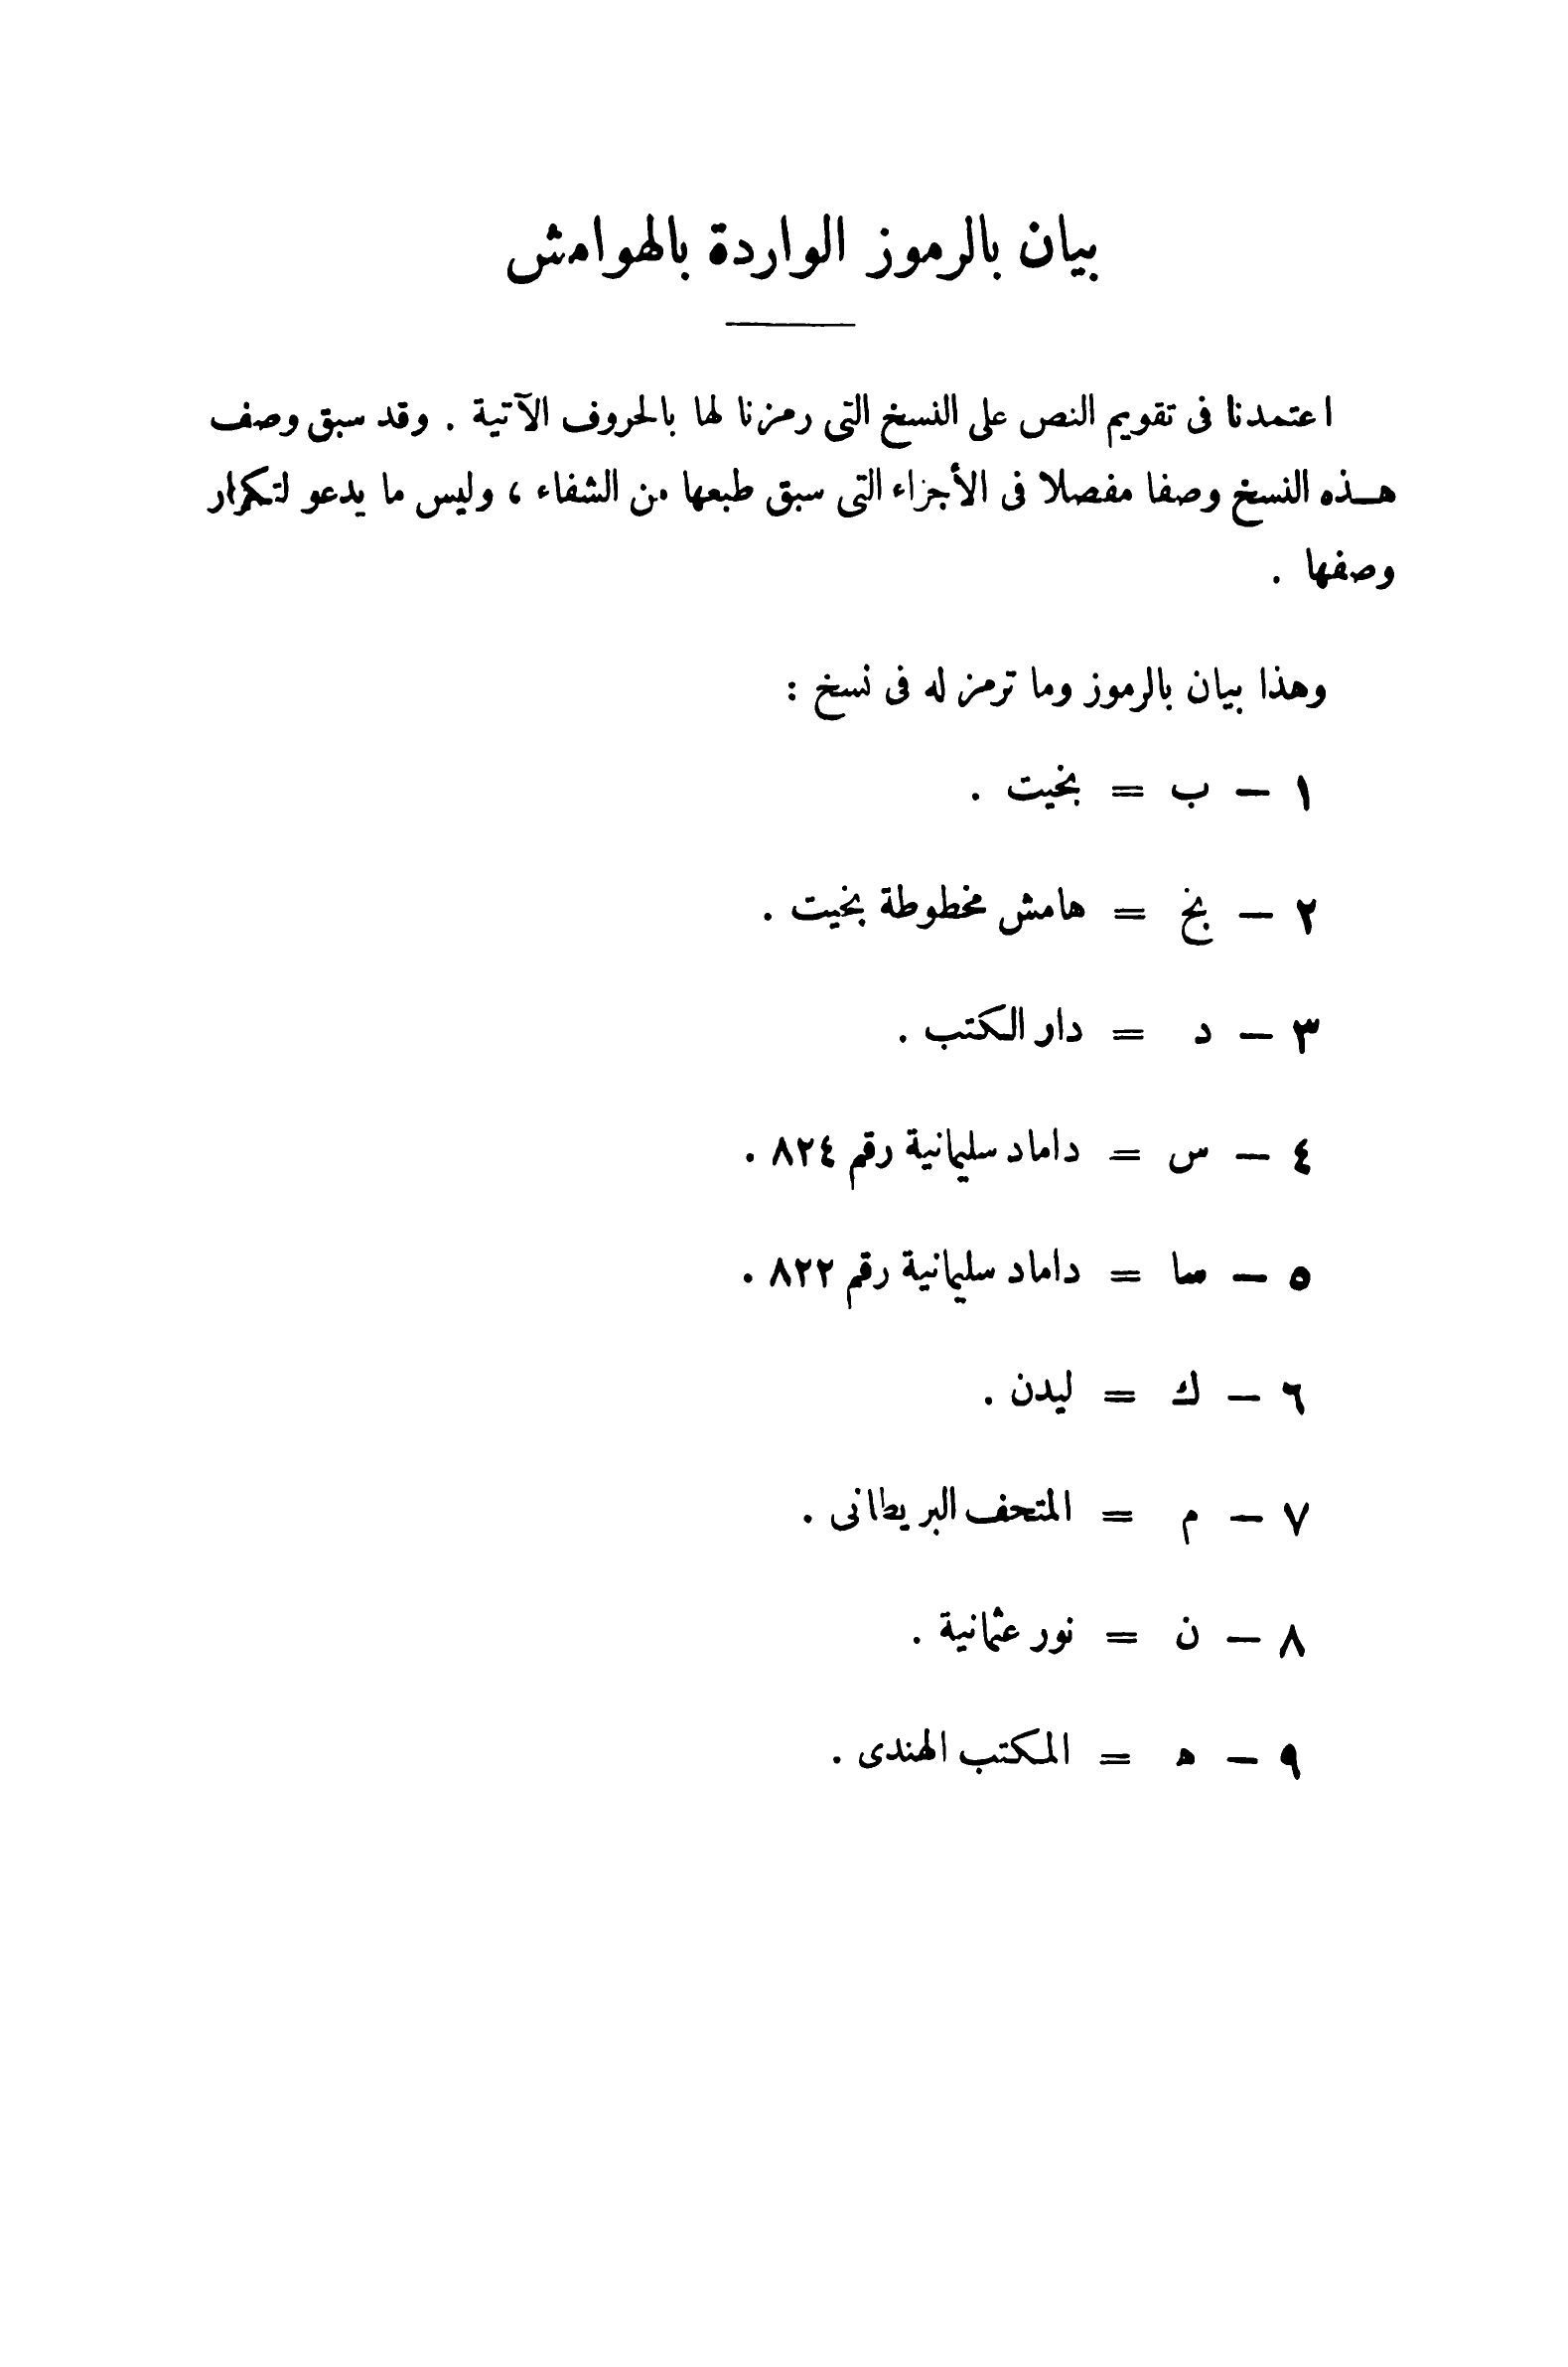 بيان بالرموز الواردة بالهوامش
اعتمدنا فى تقويم النص على النسخ التى رمزنا لها بالحروف الآتية . وقد سبق وصف
هــذه النسخ وصفا مفصلا فى الأجزاء التى سبق طبعها من الشفاء ، وليس ما يدعو لتكرار
وصفها .
وهذا بيان بالرموز وما ترمز له فى نسخ :
١ — ب = بخيت .
٢ — بخ = هامش مخطوطة بخيت .
٣ — د = دار الكتب .
٤ — س = داماد سليمانية رقم ٨٢٤ .
٥ — سا = داماد سليمانية رقم ٨٢٢ .
٦ — ك = ليدن .
٧ — م = المتحف البريطانى .
٨ — ن = نور عثمانية .
٩ — ه = المكتب الهندى .